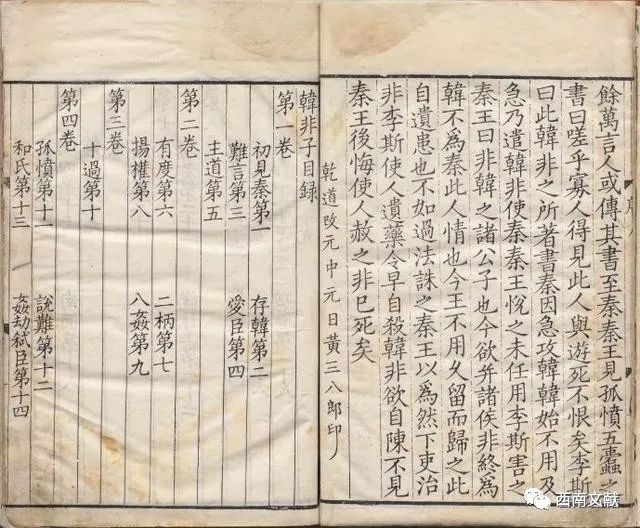 餘萬言人或傳其書至秦秦王見孤憤五蠹之
書曰嗟乎寡人得見此人與遊死不恨矣李斯
曰此韓非之所著書秦因急攻韓韓始不用及
急乃遣韓非使秦秦王悅之未任用李斯害之
秦王曰非韓之諸公子也今欲幷諸侯非終爲
韓不爲秦此人情也今王不用久留而歸之此
自遺患也不如過法誅之秦王以爲然下吏治
非李斯使人遺藥令早自殺韓非欲自陳不見
秦王後悔使人赦之非巳死矣
乾道改元中元日黃三八郎印
韓非子目録
第一卷
初見秦第一 存韓第二
難言第三 愛臣第四
主道第五
第二卷
有度第六 二柄第七
揚權第八 八姦第九
第三卷
十過第十
第四卷
孤憤第十一 說難第十二
和氏第十三 姦劫弑臣第十四
西南文献